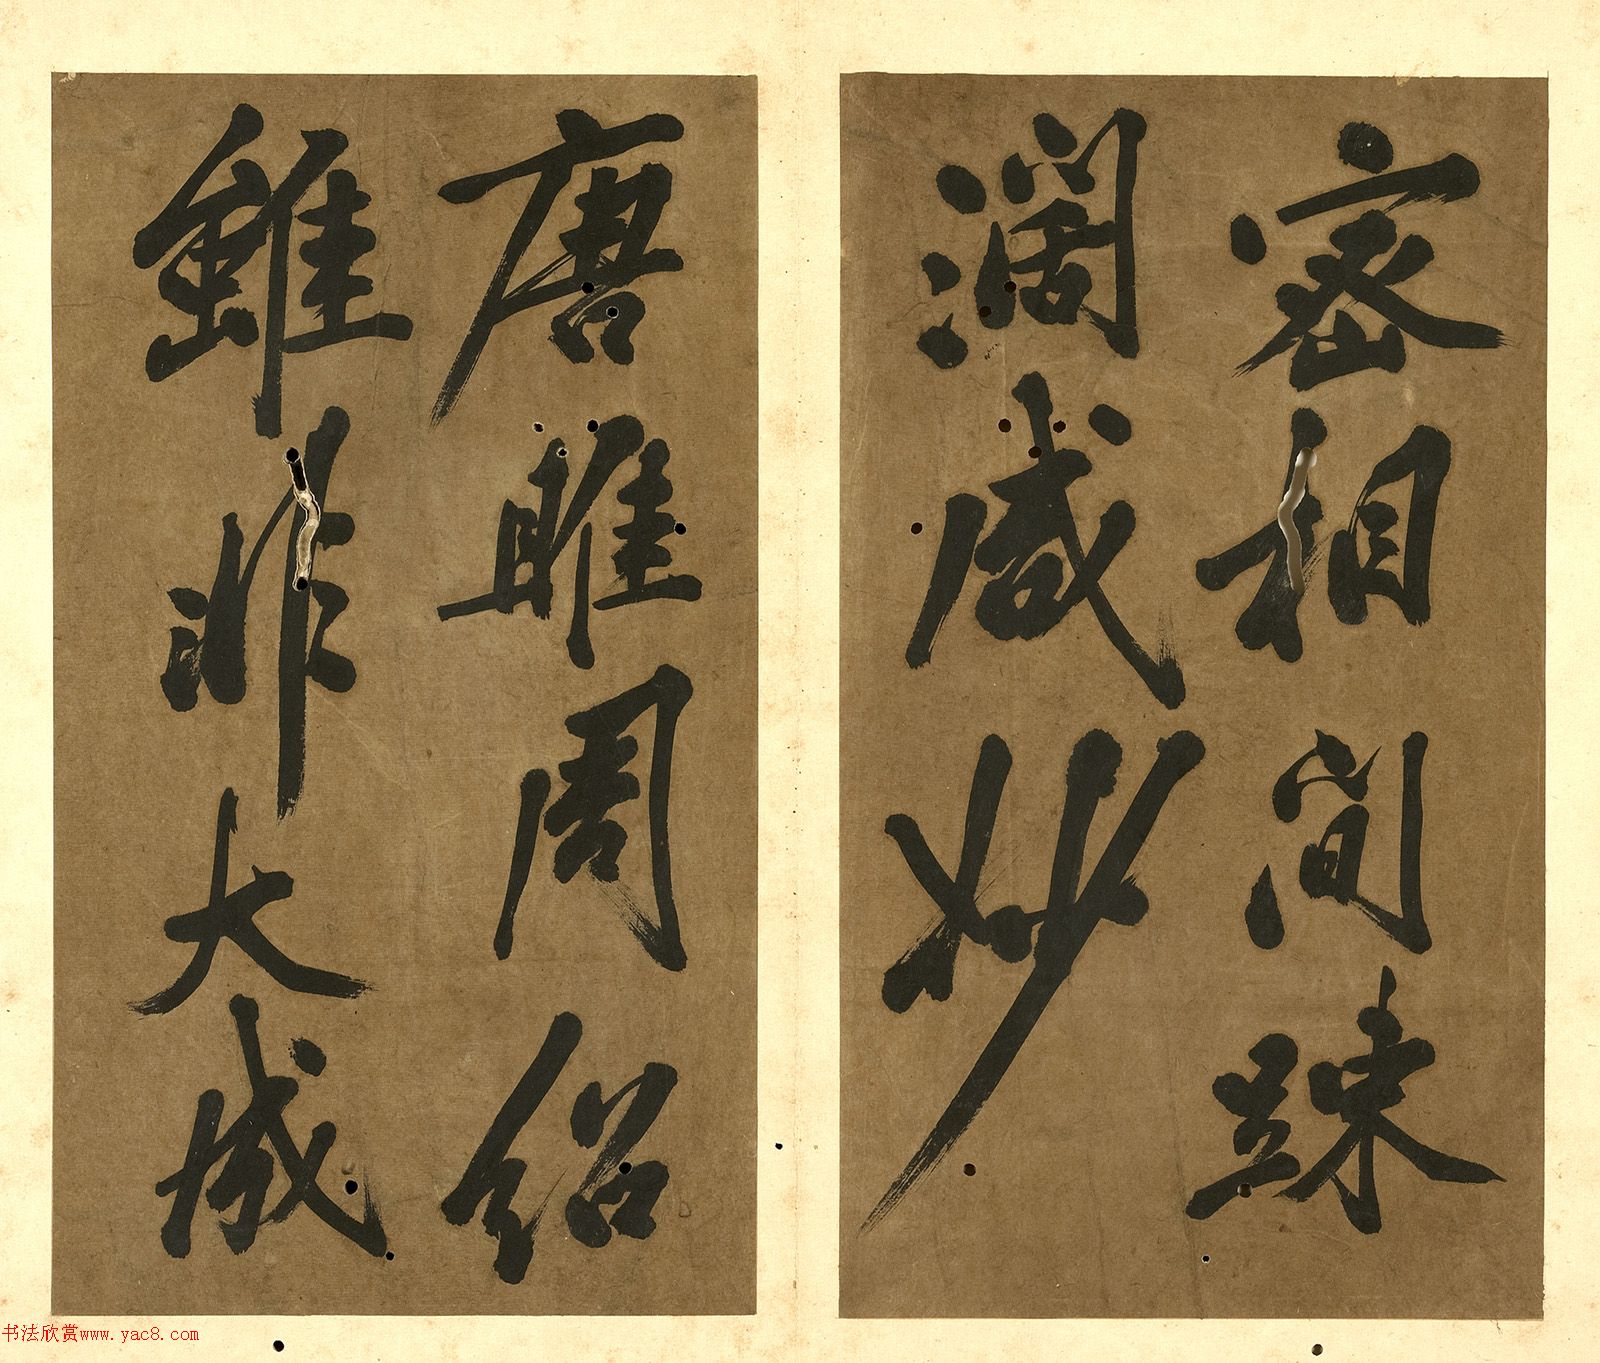 密相間踈
濶咸妙
唐雎周紹
雖非大成
书法欣赏www.yac8.com